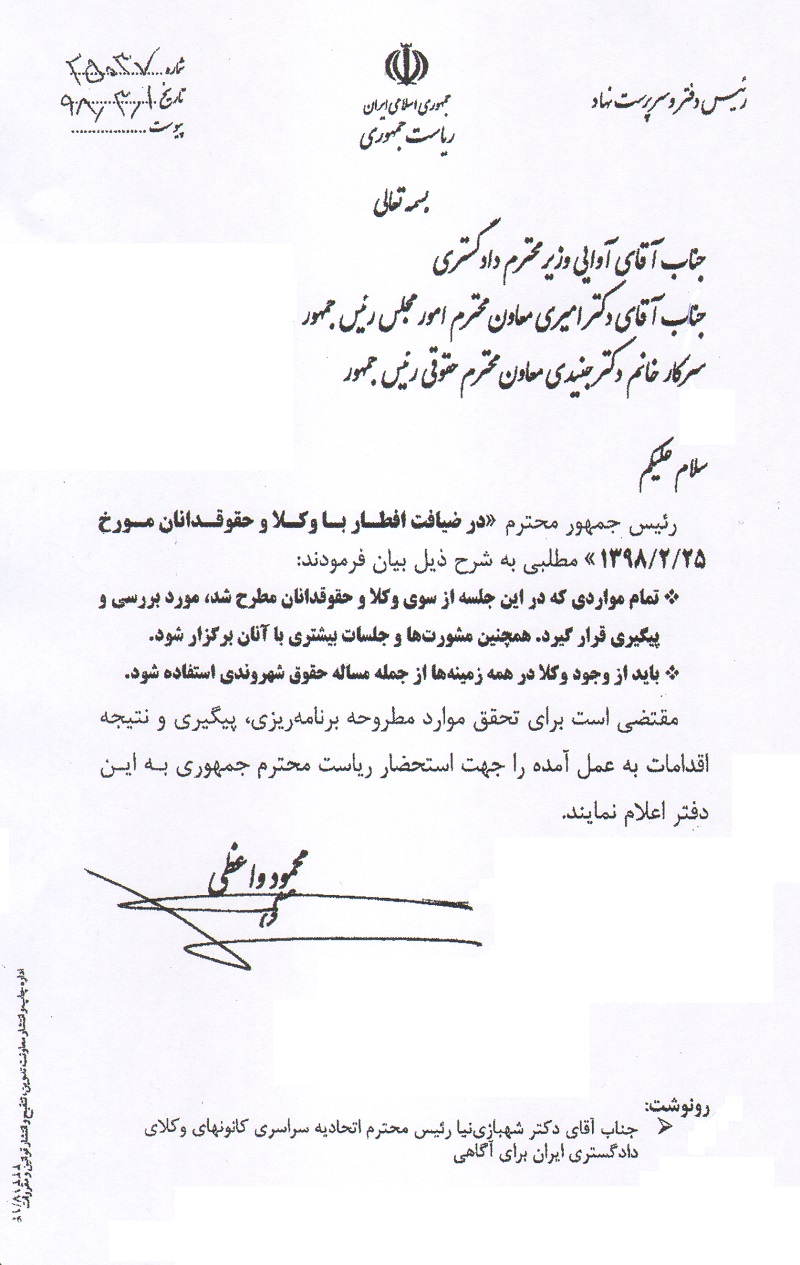 رئیس دفتر و سرپرست نهاد
جمهوری اسلامی ایران
ریاست جمهوری
شماره ۲۵۰۳۷
تاریخ ۹۸/۳/۱
پیوست
بسمه تعالی
جناب آقای آوایی وزیر محترم دادگستری
جناب آقای دکتر امیری معاون محترم امور مجلس رئیس جمهور
سرکار خانم دکتر جنیدی معاون محترم حقوقی رئیس جمهور
سلام علیکم
رئیس جمهور محترم «در ضیافت افطار با وکلا و حقوقدانان مورخ
۱۳۹۸/۲/۲۵» مطلبی به شرح ذیل بیان فرمودند:
❖ تمام مواردی که در این جلسه از سوی وکلا و حقوقدانان مطرح شد، مورد بررسی و
پیگیری قرار گیرد. همچنین مشورت‌ها و جلسات بیشتری با آنان برگزار شود.
❖ باید از وجود وکلا در همه زمینه‌ها از جمله مساله حقوق شهروندی استفاده شود.
مقتضی است برای تحقق موارد مطروحه برنامه‌ریزی، پیگیری و نتیجه
اقدامات به عمل آمده را جهت استحضار ریاست محترم جمهوری به این
دفتر اعلام نمایند.
محمود واعظی
رونوشت:
➢ جناب آقای دکتر شهبازی‌نیا رئیس محترم اتحادیه سراسری کانونهای وکلای
دادگستری ایران برای آگاهی
اداره چاپ و انتشار معاونت تدوین، تنقیح و انتشار قوانین و مقررات